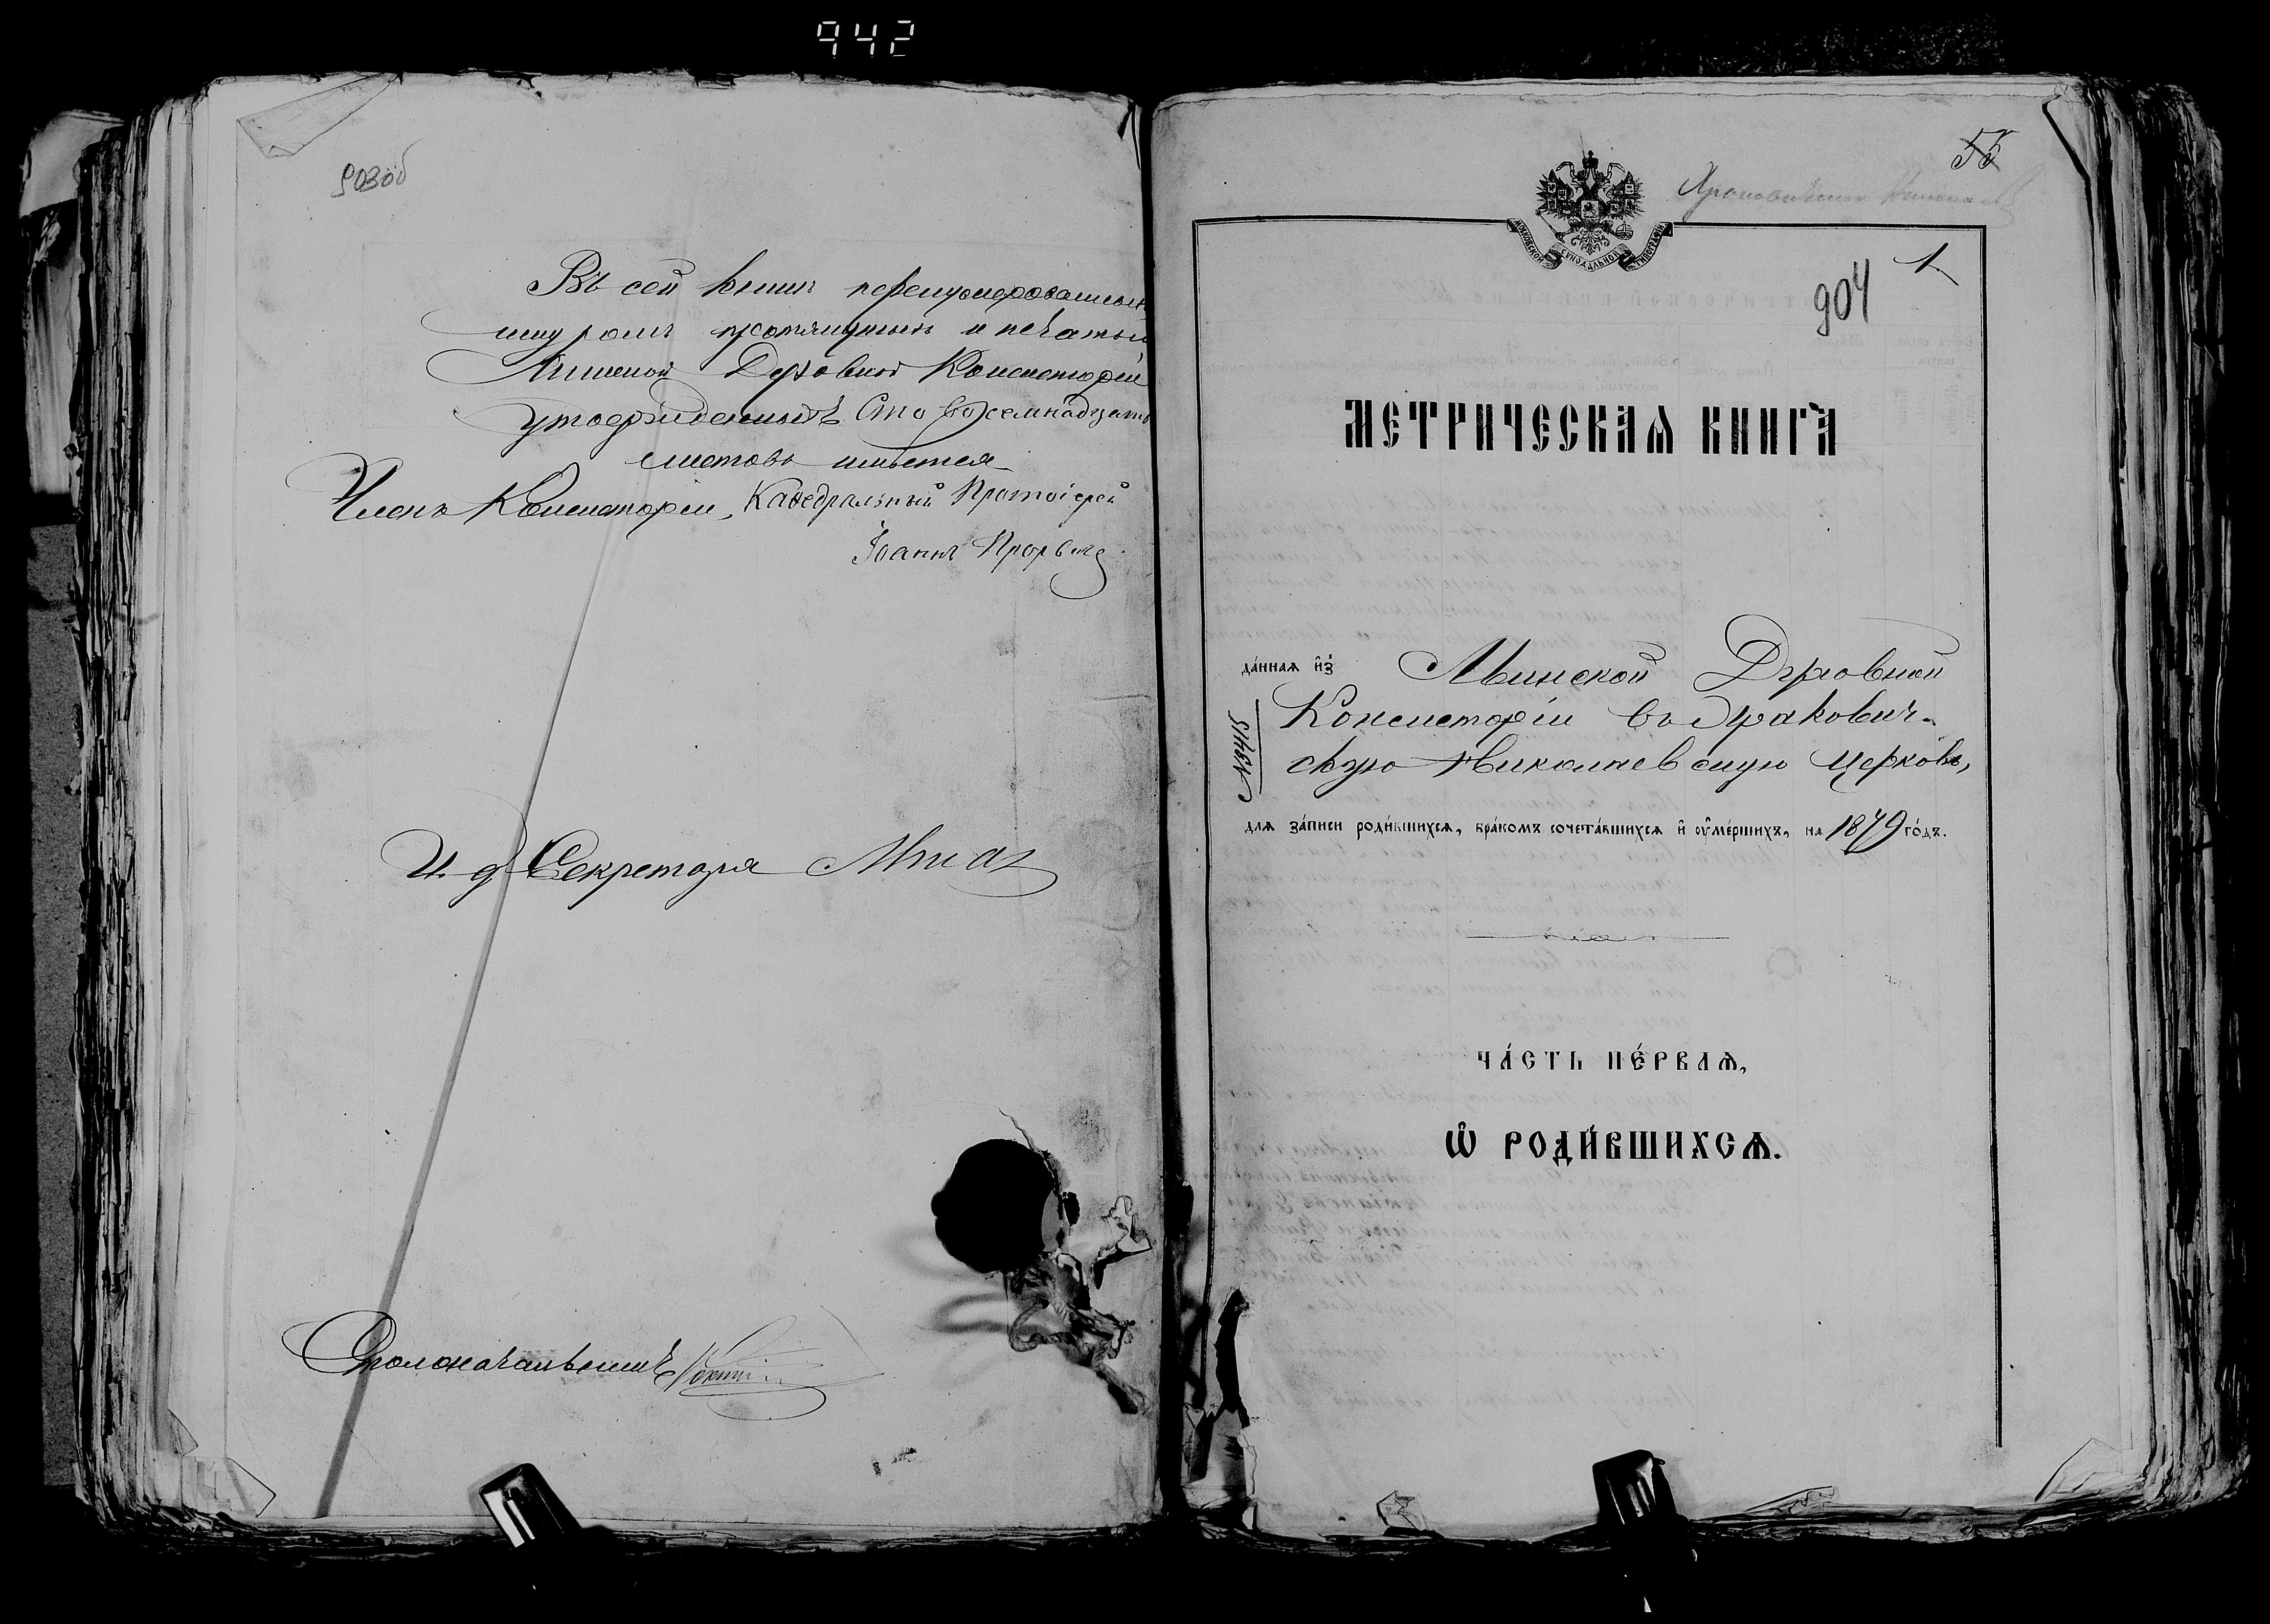 942
903об
Въ сей книгѣ перенумерованныхъ
шнуромъ протянутыхъ и печатью
Минской Духовной Консисторіи
утвержденныхъ Сто восемнадцать
листовъ имѣется
Членъ Консисторіи, Каѳедральный Протоіерей
Іоаннъ
И. д. Секретаря
Столоначальникъ
55
МОСКОВСКОЙ СѴНОДАЛЬНОЙ ТИПОГРАФІИ
1
904
МЕТРИЧЕСКАѦ КНИГА
да́ннаѧ и҆з̾ Минской Духовной
Консисторіи въ
скую Николаевскую Церковь,
длѧ за́писи роди́вшихсѧ, бра́комъ сочета́вшихсѧ и҆ ᲂу҆ме́ршихъ, на 1879 го́дъ.
ЧА́СТЬ ПЕ́РВАѦ,
Ѡ҆ РОДИ́ВШИХСѦ.